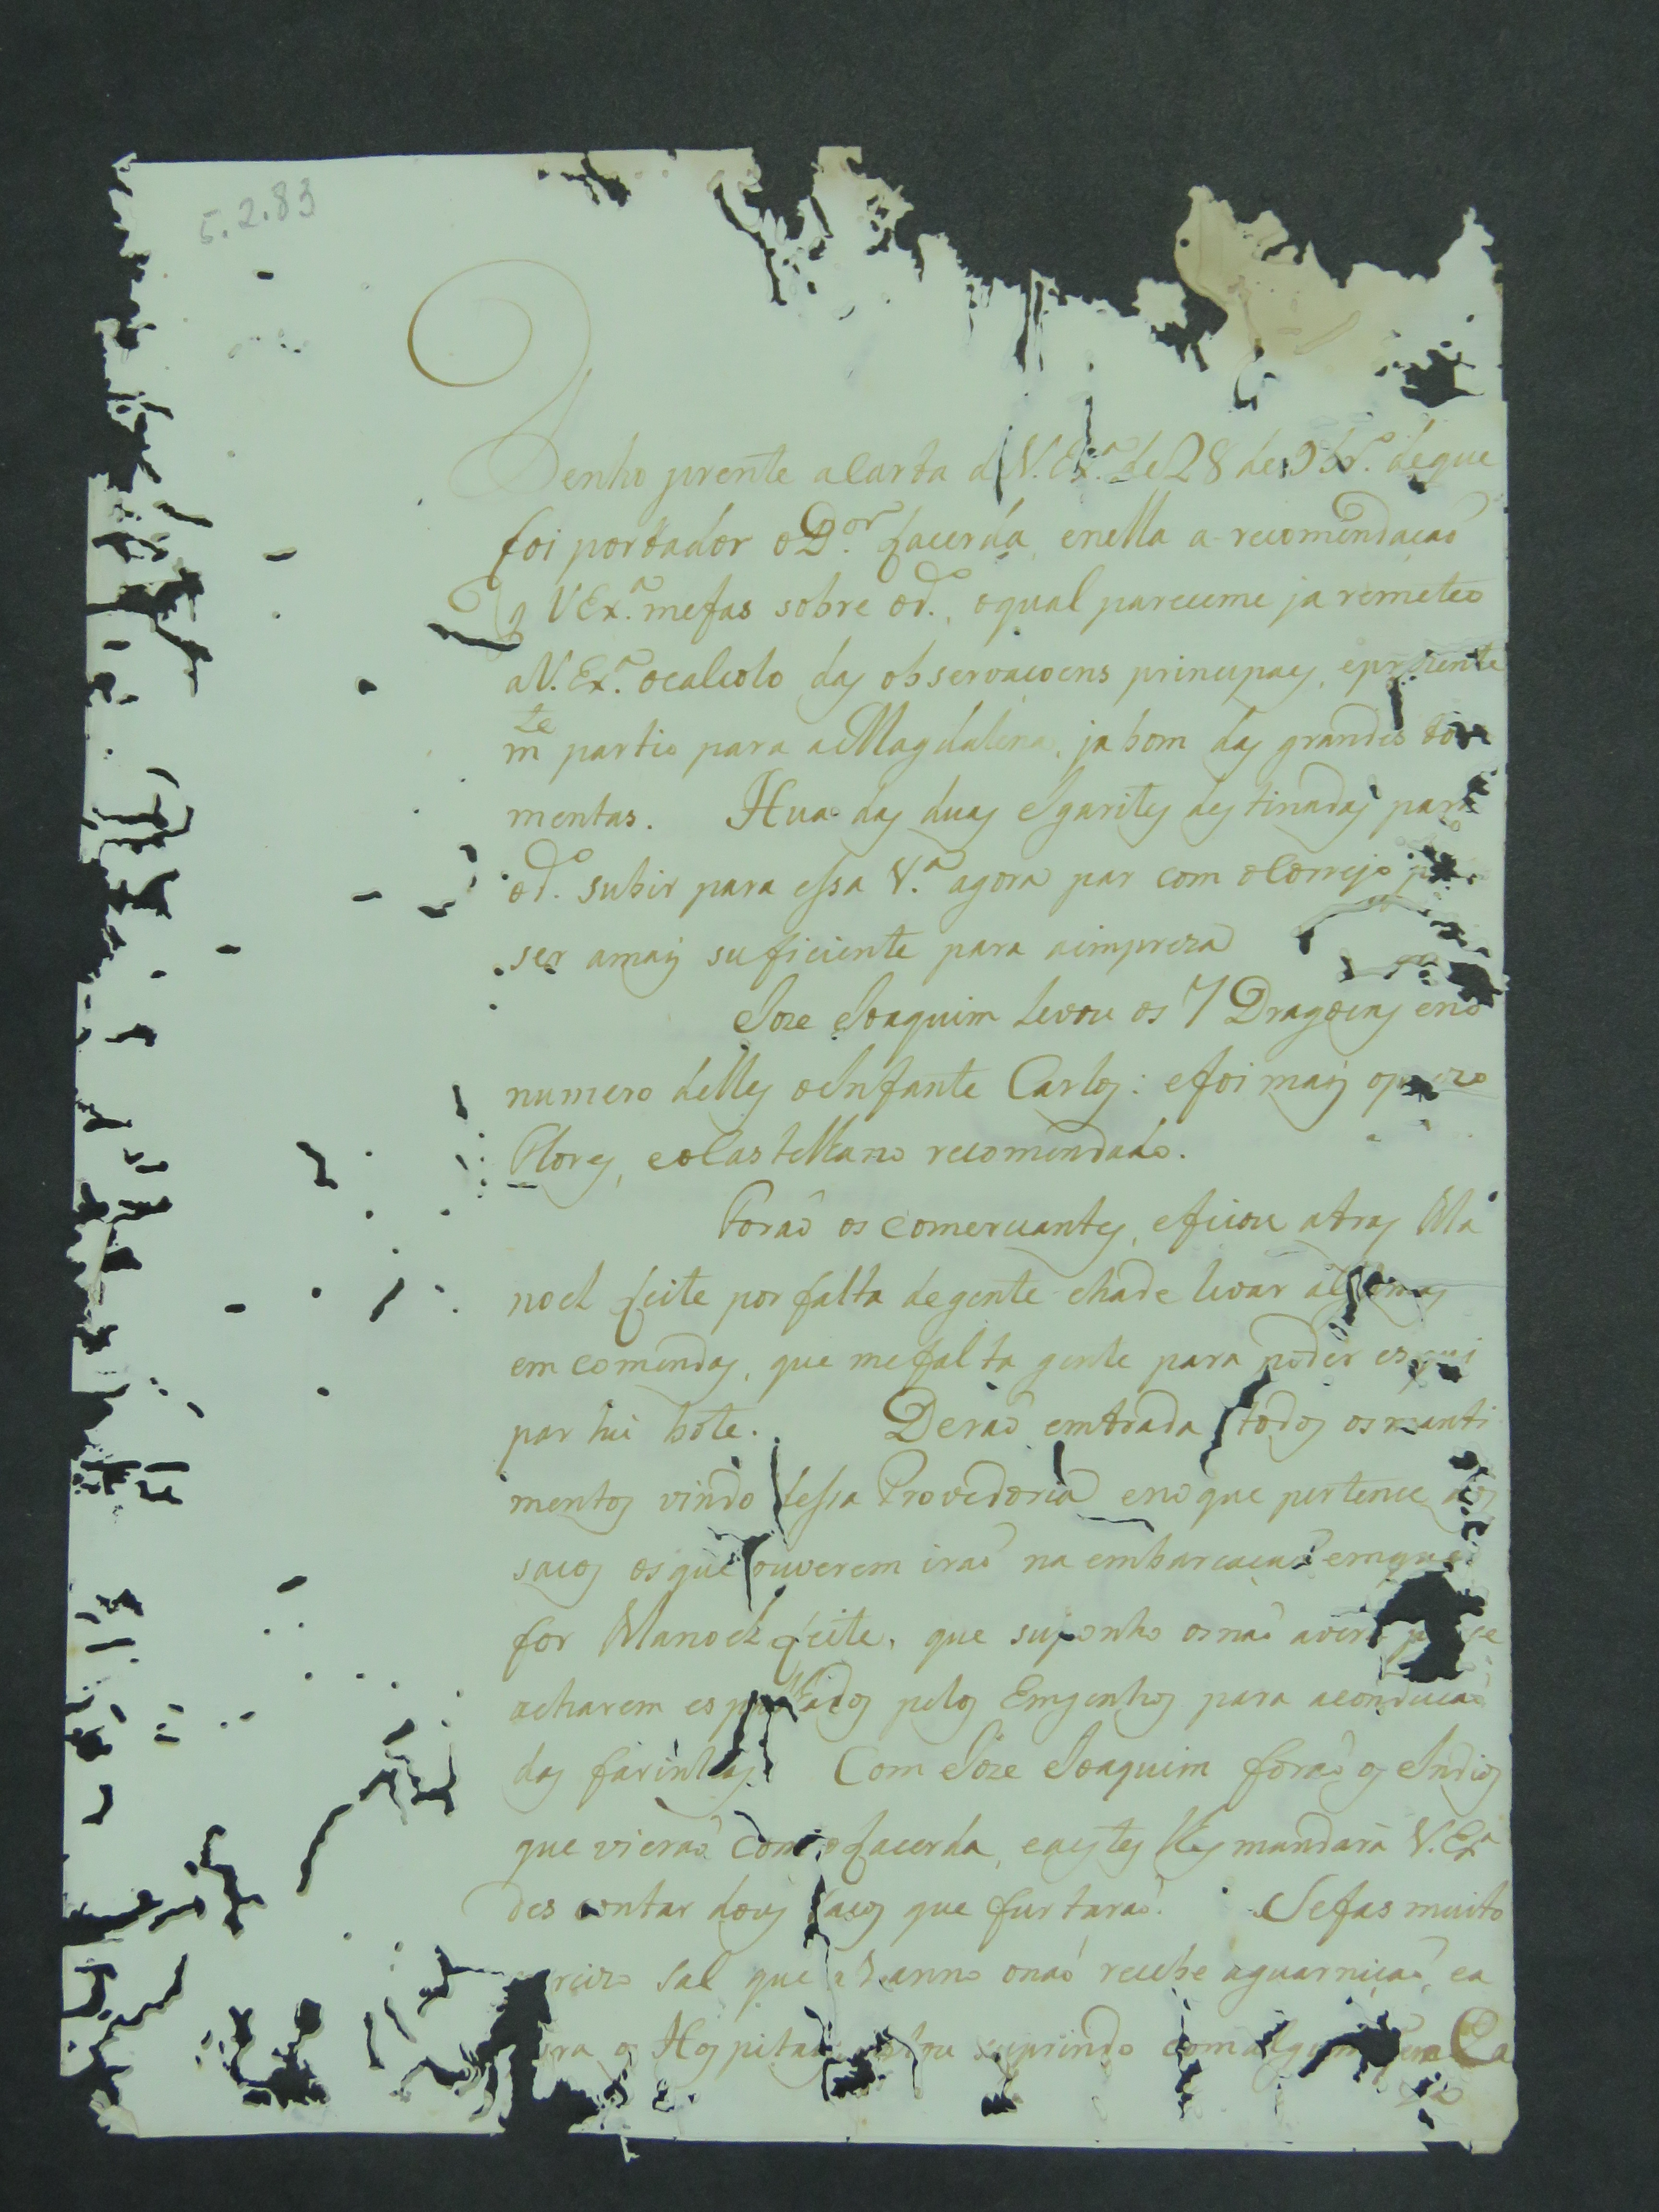 5.2.83
Tenho prente a Carta d V. Exª. de 28 de 9br.º de que
foi portador o D.or Lacerda, e nella a recomendaçaõ
q V Exª. me fas sobre o d.º, o qual pareceme ja remeteo
a V. Exª. o calcolo das observacoens principaes, e prezente
m.te partio para a Magdalena, ja bom das grandes tor
mentas. Hua das duas Igarites destinadas para
o d.º subir para essa V.ª agora par com o Correjo
ser a mais suficiente para a impreza
Joze Joaquim levou os 7 Dragoens e no
numero delles o Infante Carlos: e foi mais o
Flores, e o Castellano recomendado.
Foraõ os comerciantes, e ficou atras Ma
noel Leite por falta de gente e hade levar algumas
em comendas, que me falta gente para poder esqui
par hũ bote. Deraõ emtrada todos os manti
mentos vindo dessa Provedoria e no que pertence aos
sacos os que ouverem iraõ na embarcaçaõ em que
for Manoel Leite, que suponho os naõ averá se
acharem espalhados pelos Emgenhos para a conduçaõ
das farinhas. Com Joze Joaquim foraõ os Indios
que vieraõ com o Lacerda, e a estes lhes mandará V. Exª
des contar dous sacos que furtaraõ. Se fas muito
precizo sal que a anno o naõ recebe a guarniçaõ, e a
gora o Hospital suprindo com algum Ca